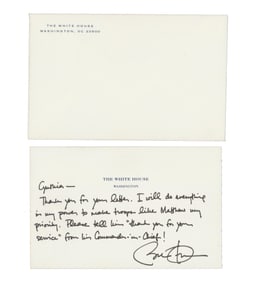 THE WHITE HOUSE
WASHINGTON, DC 20500
THE WHITE HOUSE
WASHINGTON
Cynthia —
Thank you for your letter. I will do everything
in my power to make troops like Matthew my
priority. Please tell him "thank you for your
service" from his Commander-in-Chief!